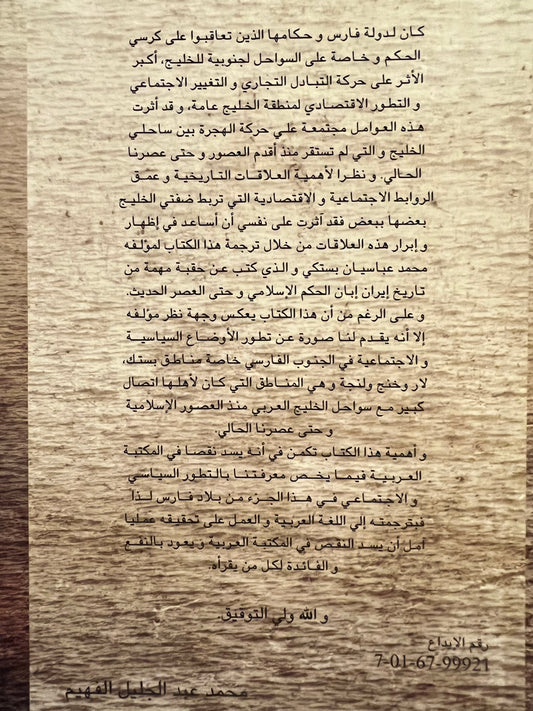 كان لدولة فارس و حكامها الذين تعاقبوا على كرسي
الحكم و خاصة على السواحل لجنوبية للخليج، أكبر
الأثر على حركة التبادل التجاري و التغيير الاجتماعي
و التطور الاقتصادي لمنطقة الخليج عامة، و قد أثرت
هذه العوامل مجتمعة علي حركة الهجرة بين ساحلي
الخليج و التي لم تستقر منذ أقدم العصور و حتى عصرنا
الحالي. و نظرا لأهمية العلاقات التاريخية و عمق
الروابط الاجتماعية و الاقتصادية التي تربط ضفتي الخليج
بعضها ببعض فقد آثرت على نفسي أن أساعد في إظهار
و إبرار هذه العلاقات من خلال ترجمة هذا الكتاب لمؤلفه
محمد عباسيان بستكي و الذي كتب عن حقبة مهمة من
تاريخ إيران إبان الحكم الإسلامي و حتى العصر الحديث.
و على الرغم من أن هذا الكتاب يعكس وجهة نظر مؤلفه
إلا أنه يقدم لنا صورة عن تطور الأوضاع السياسية
و الاجتماعية في الجنوب الفارسي خاصة مناطق بستك،
لار وخنج ولنجة و هي المناطق التي كان لأهلها اتصال
كبير مع سواحل الخليج العربي منذ العصور الإسلامية
و حتى عصرنا الحالي.
و أهمية هذا الكتاب تكمن في أنه يسد نقصا في المكتبة
العربية فيما يخص معرفتنا بالتطور السياسي
و الاجتماعي في هذا الجزء من بلاد فارس لذا
فبترجمته إلي اللغة العربية و العمل على تحقيقه عمليا
آمل أن يسد النقص في المكتبة العربية و يعود بالنفع
و الفائدة لكل من يقرأه.
و الله ولي التوفيق.
رقم الايداع
7-01-67-99921
محمد عبد الجليل الفهيم